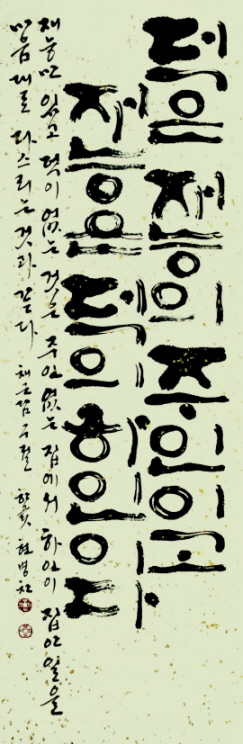 덕은 재능의 주인이고
재능은 덕의 하인이다
재능만 있고 덕이 없는 것은 주인 없는 집에서 하인이 집안일을
마음대로 다스리는 것과 같다 채근담 구절 현병찬